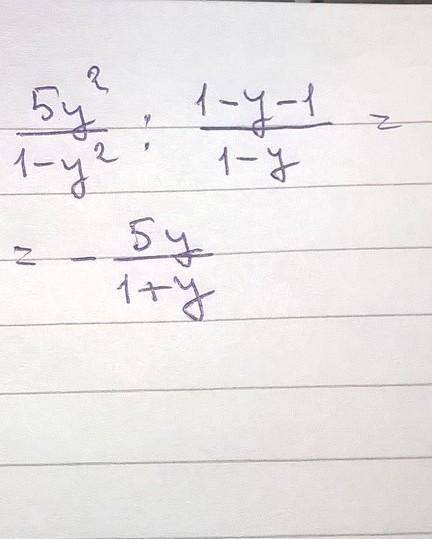 5y²/1-y² : 1-y-1/1-y =
= - 5y/1+y